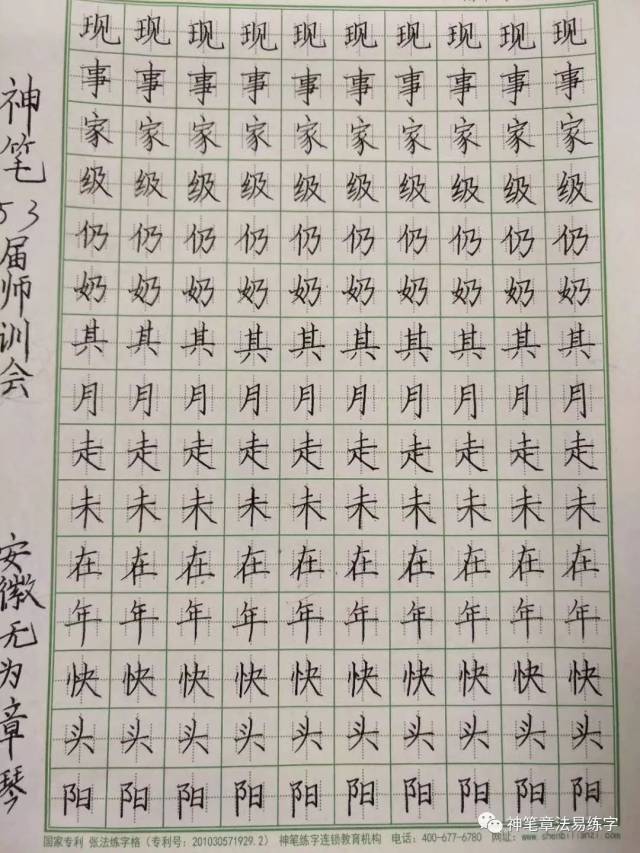 现现现现现现现现现现
事事事事事事事事事事
家家家家家家家家家家
级级级级级级级级级级
仍仍仍仍仍仍仍仍仍仍
奶奶奶奶奶奶奶奶奶奶
其其其其其其其其其其
月月月月月月月月月月
走走走走走走走走走走
未未未未未未未未未未
在在在在在在在在在在
年年年年年年年年年年
快快快快快快快快快快
头头头头头头头头头头
阳阳阳阳阳阳阳阳阳阳
神笔53届师训会
安徽无为章琴
国家专利 张法练字格（专利号：201030571929.2） 神笔练字连锁教育机构 电话：400-677-6780 网址：www.shenbilianzi.com
神笔章法易练字